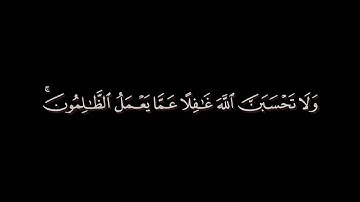 وَلَا تَحْسَبَنَّ ٱللَّهَ غَٰفِلًا عَمَّا يَعْمَلُ ٱلظَّٰلِمُونَ ۚ